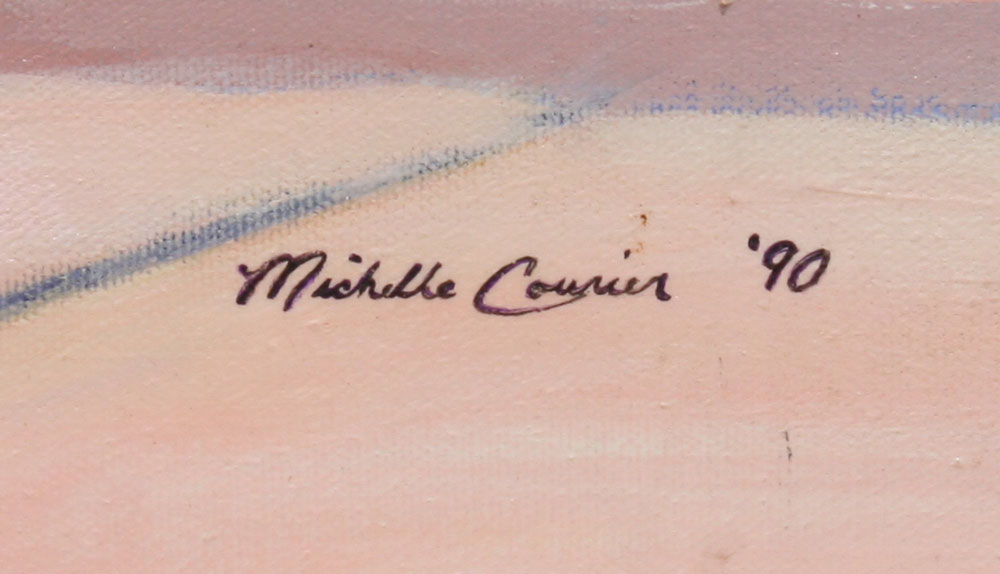 Michelle Courier '90